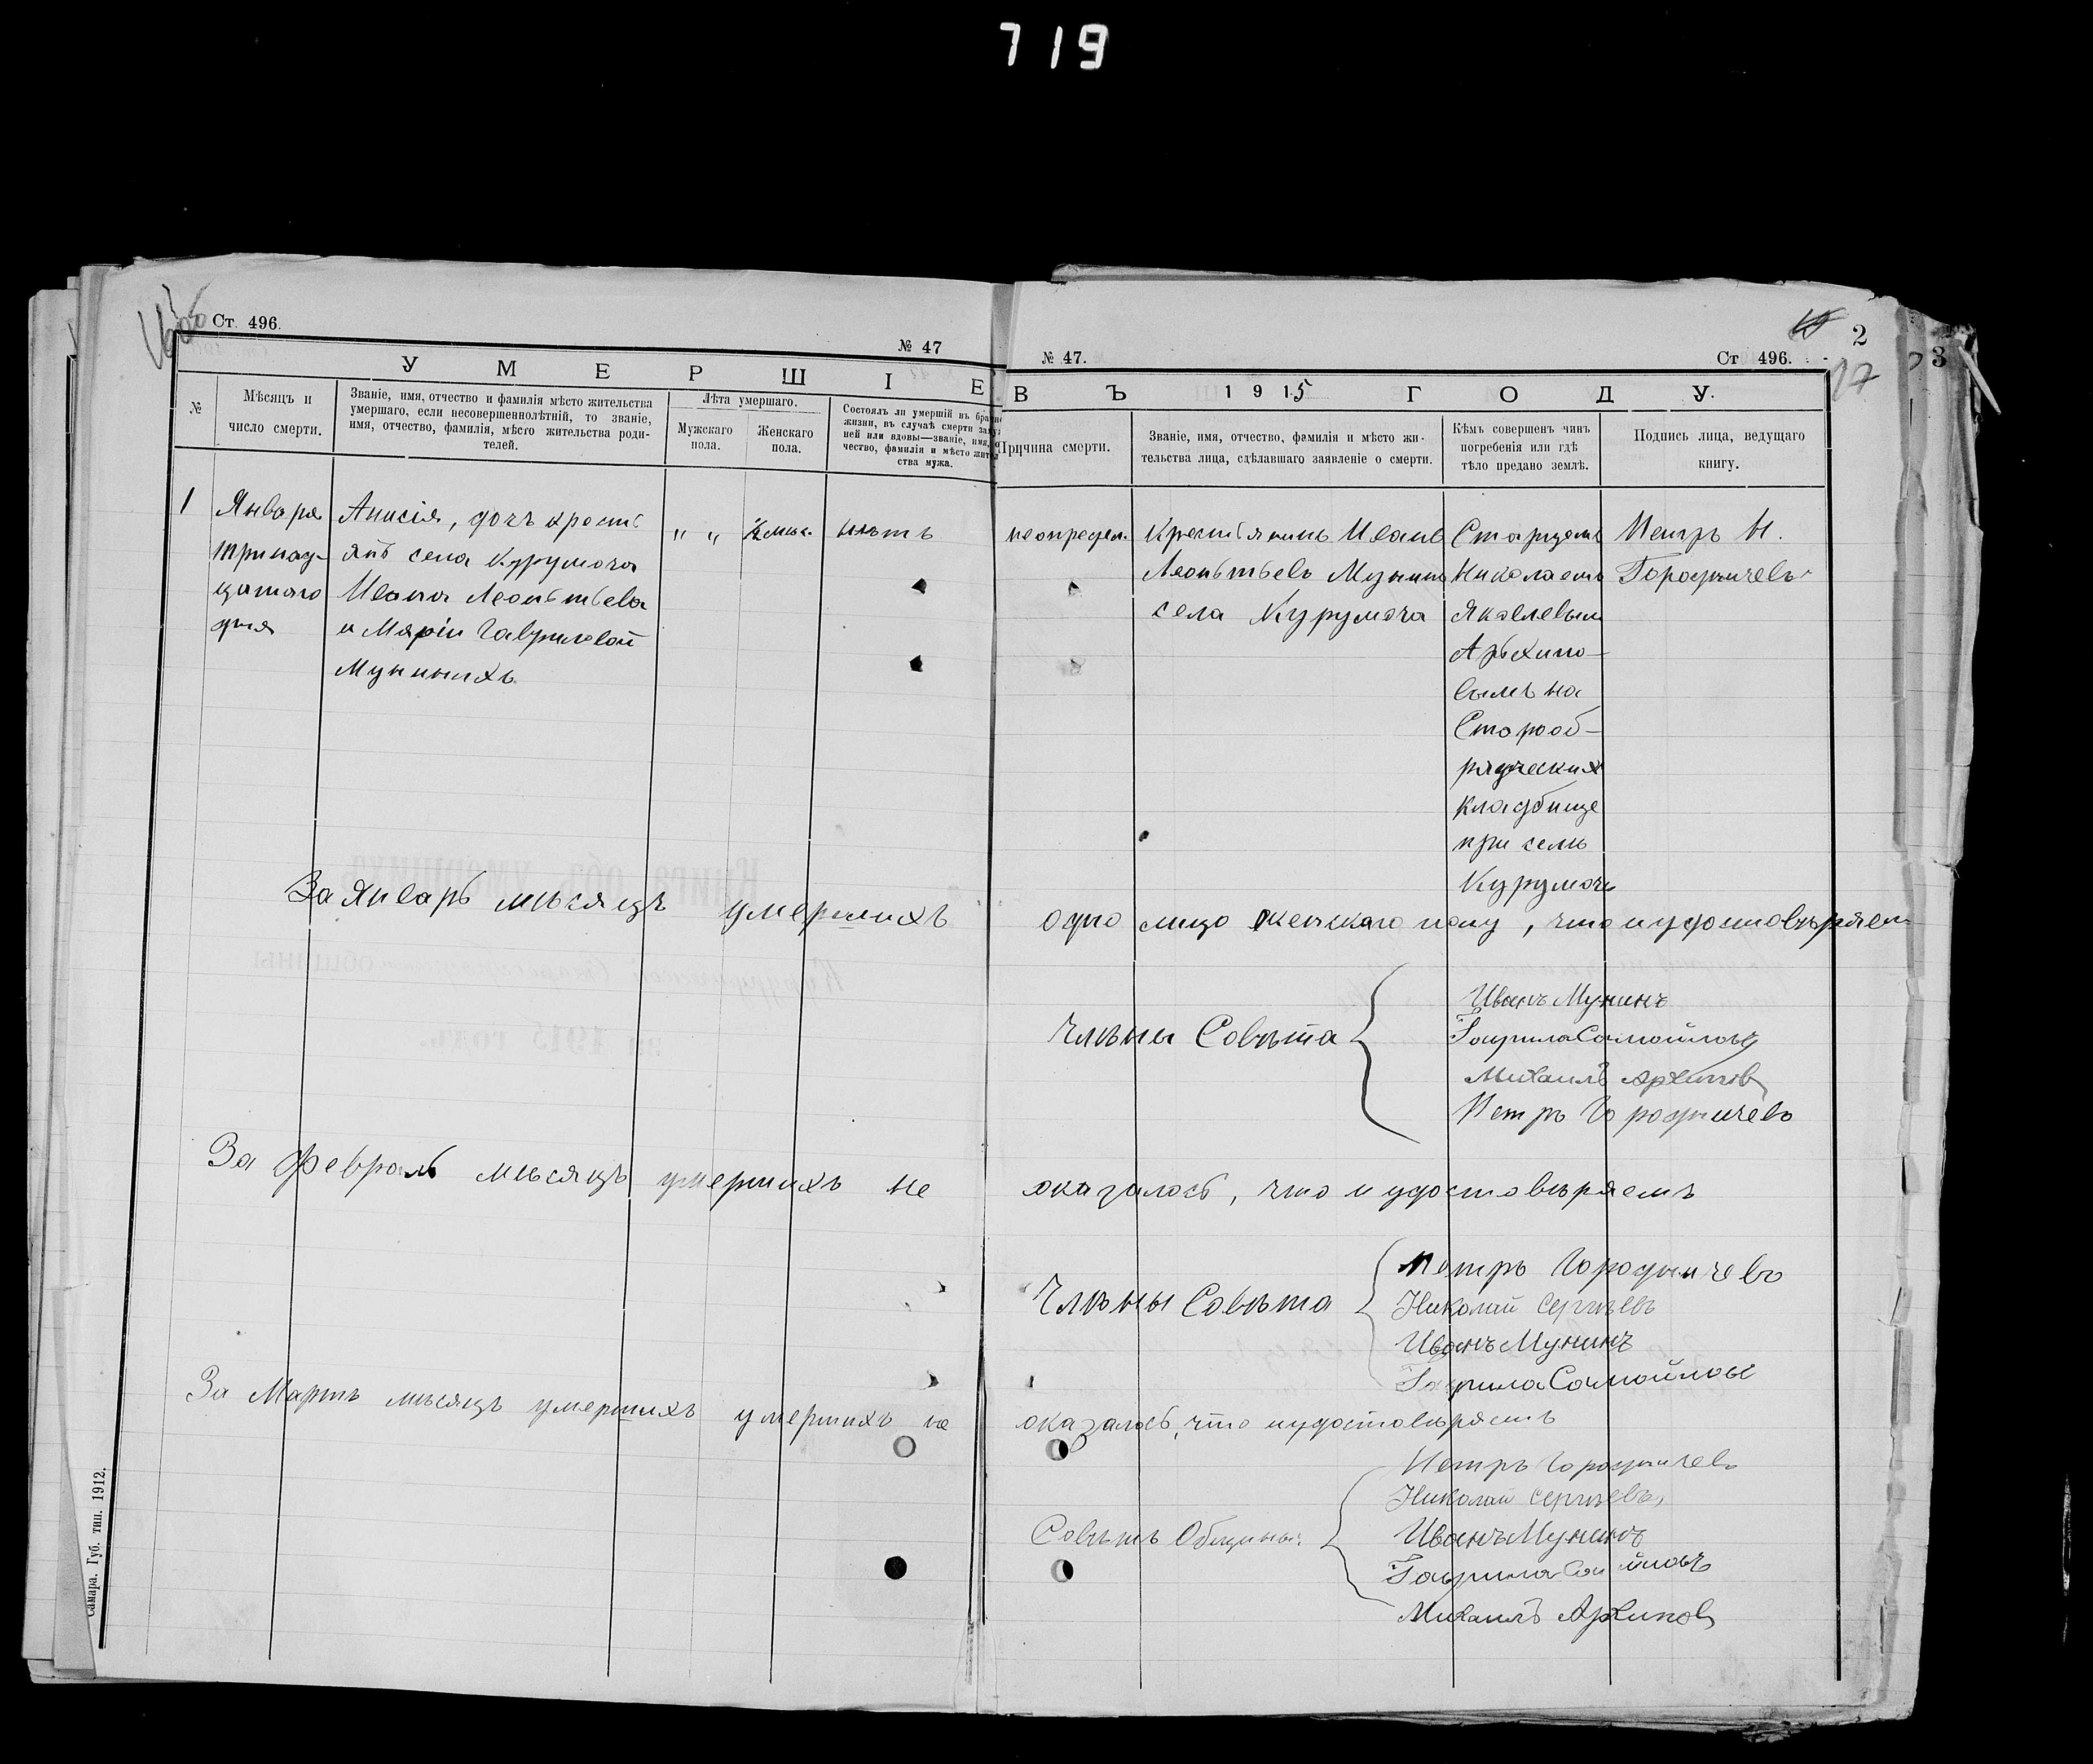 719
Ст. 496.
№ 47
УМЕРШІЕ
№
Мѣсяцъ и
число смерти.
Званіе, имя, отчество и фамилія мѣсто жительства
умершаго, если несовершеннолѣтній, то званіе,
имя, отчество, фамилія, мѣсто жительства роди-
телей.
Лѣта умершаго.
Мужскаго
пола.
Женскаго
пола.
Состоялъ ли умершій въ
жизни, въ случаѣ смерти
ней или вдовы—званіе, имя,
чество, фамилія и мѣсто
ства мужа.
1
Января
тринад-
цатаго
дня
Анисія, дочъ крестЬ
янъ села Курумоча
Ивана Леонтьева
и Маріи Гавриловой
Муниныхъ
" "
½ мѣс.
нѣтъ
За Январь мѣсяцъ умершихъ
За Февраль мѣсяцъ умершихъ не
За Мартъ мѣсяцъ умершихъ умершихъ не
Самара. Губ. тип. 1912.
№ 47.
Ст 496.
2
17
3
ВЪ 1915 ГОДУ.
Причина смерти.
Званіе, имя, отчество, фамилія и мѣсто жи-
тельства лица, сдѣлавшаго заявленіе о смерти.
Кѣмъ совершенъ чинъ
погребенія или гдѣ
тѣло предано землѣ.
Подпись лица, ведущаго
книгу.
неопредел.
Крестьянинъ Иванъ
Леоньтьевъ Мунинъ
села Курумоча
Старцемъ
Николаемъ
Яковлевым
Арьхипо-
вымъ на
Старооб-
рядческих
кладбище
при селѣ
Курумочѣ
Петръ Н.
Городничевъ
одно лицо женскаго полу, что и удостовѣряем
Члѣны Совѣта
Иванъ Мунинъ
Гаврила Самойловъ
Михаилъ Архипов
Петръ Городничевъ
оказалось, что и удостовѣряемъ
Члѣны Совѣта
Петръ Городничевъ
Николай Сергѣевъ
Иванъ Мунинъ
Гаврила Самойловъ
оказалось, что и удостовѣряемъ
Совѣтъ Общины:
Петръ Городничевъ
Николай Сергѣевъ
Иванъ Мунинъ
Гаврила Самойловъ
Михаилъ Архипов